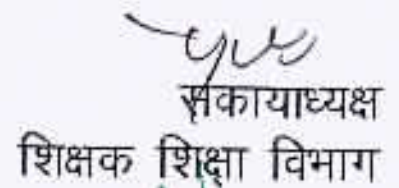 संकायाध्यक्ष
शिक्षक शिक्षा विभाग